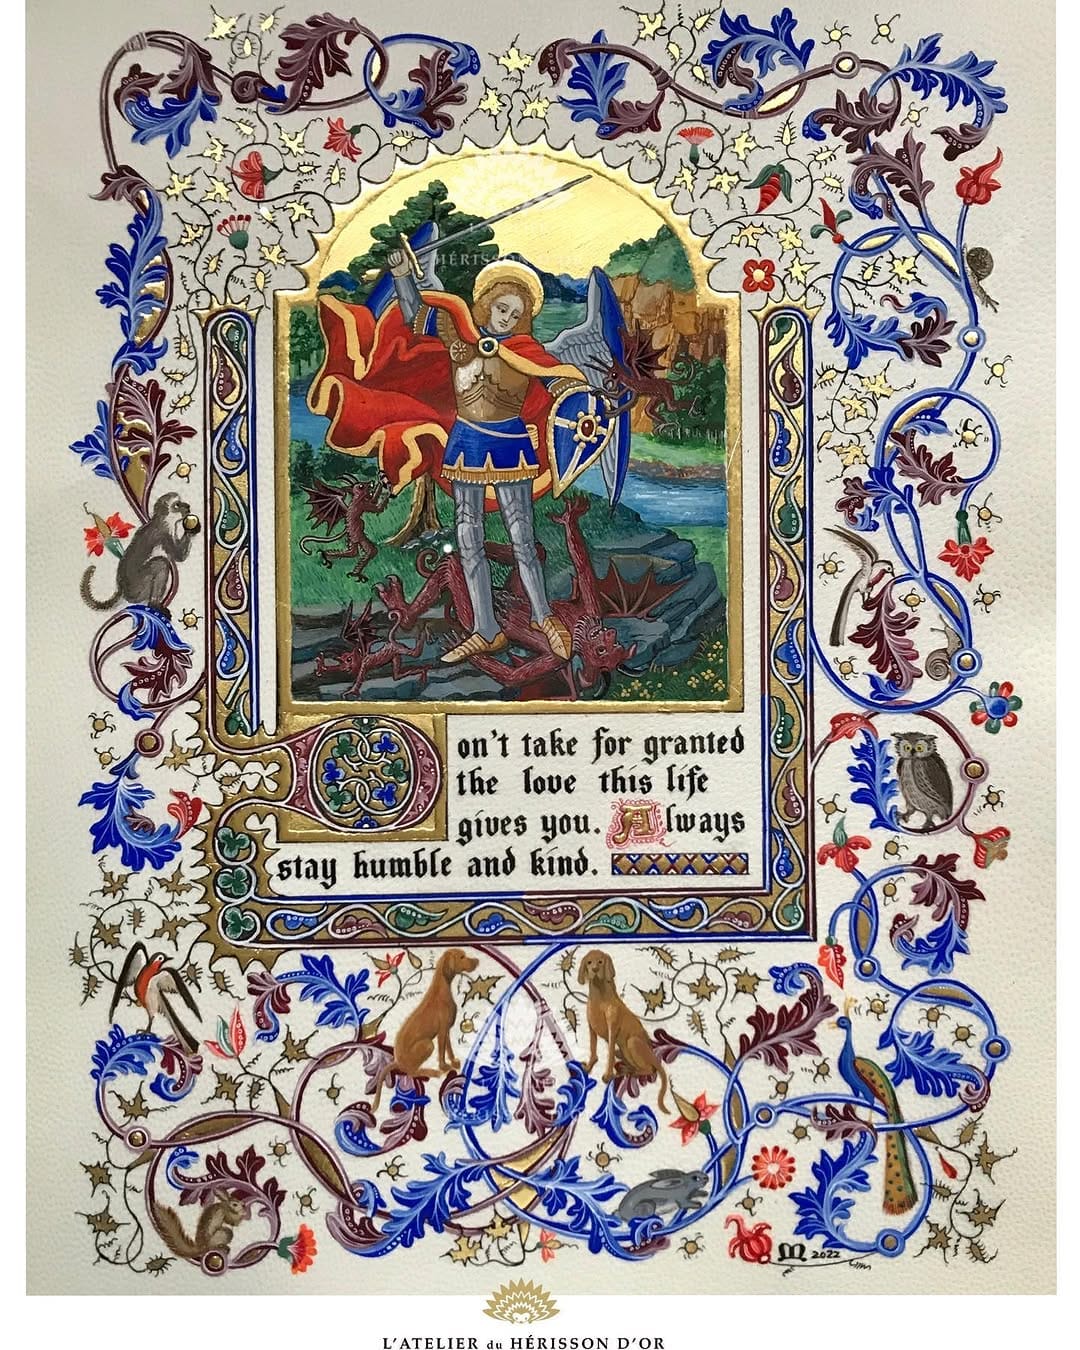 HÉRISSON D'OR
Don't take for granted
the love this life
gives you. Always
stay humble and kind.
M 2022
L'ATELIER du HÉRISSON D'OR